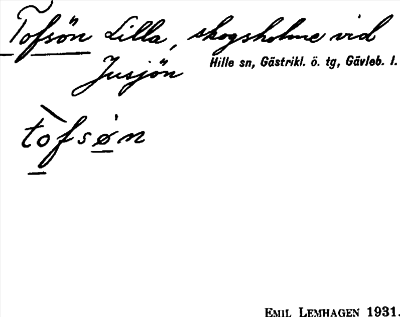 Tofsön Lilla, skogsholme vid
Jusjön Hille sn, Gästrikl. ö. tg, Gävleb. l.
tòfsøn
EMIL LEMHAGEN 1931.